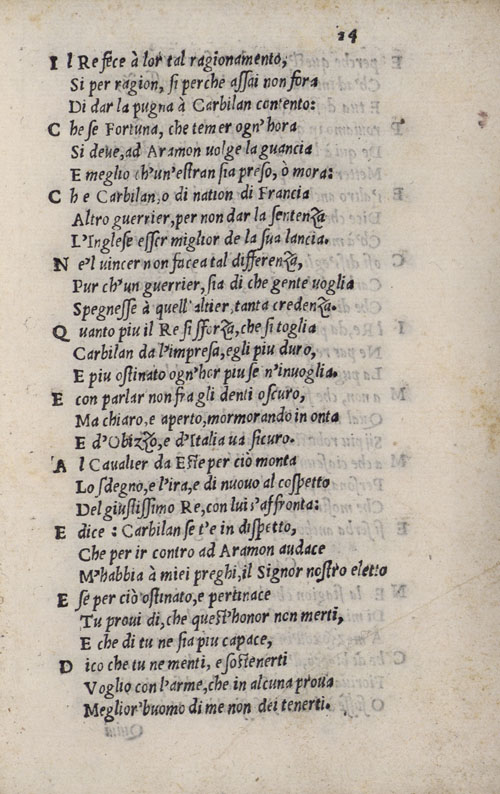 24
I l Re fece à lor tal ragionamento,
Si per ragion, si perche assai non fora
Di dar la pugna à Carbilan contento:
C he se Fortuna, che temer ogn'hora
Si deue, ad Aramon uolge la guancia
E meglio ch'un'estran sia preso, ò mora:
C h e Carbilan, o di nation di Francia
Altro guerrier, per non dar la sentenza
L'Inglese esser miglior de la sua lancia.
N e'l uincer non facea tal differenza,
Pur ch'un guerrier, sia di che gente uoglia
Spegnesse à quell'altier, tanta credenza.
Q uanto piu il Re si sforza, che si toglia
Carbilan da l'impresa, egli piu duro,
E piu ostinato ogn'hor piu se n'inuoglia.
E con parlar non fra gli denti oscuro,
Ma chiaro, e aperto, mormorando in onta
E d'Obizzo, e d'Italia ua sicuro.
A l Caualier da Este per ciò monta
Lo sdegno, e l'ira, e di nuouo al cospetto
Del giustissimo Re, con lui s'affronta:
E dice : Carbilan se t'e in dispetto,
Che per ir contro ad Aramon audace
M'habbia à miei preghi, il Signor nostro eletto
E se per ciò ostinato, e pertinace
Tu proui di, che quest'honor non merti,
E che di tu ne sia piu capace,
D ico che tu ne menti, e sostenerti
Voglio con l'arme, che in alcuna proua
Meglior'huomo di me non dei tenerti.